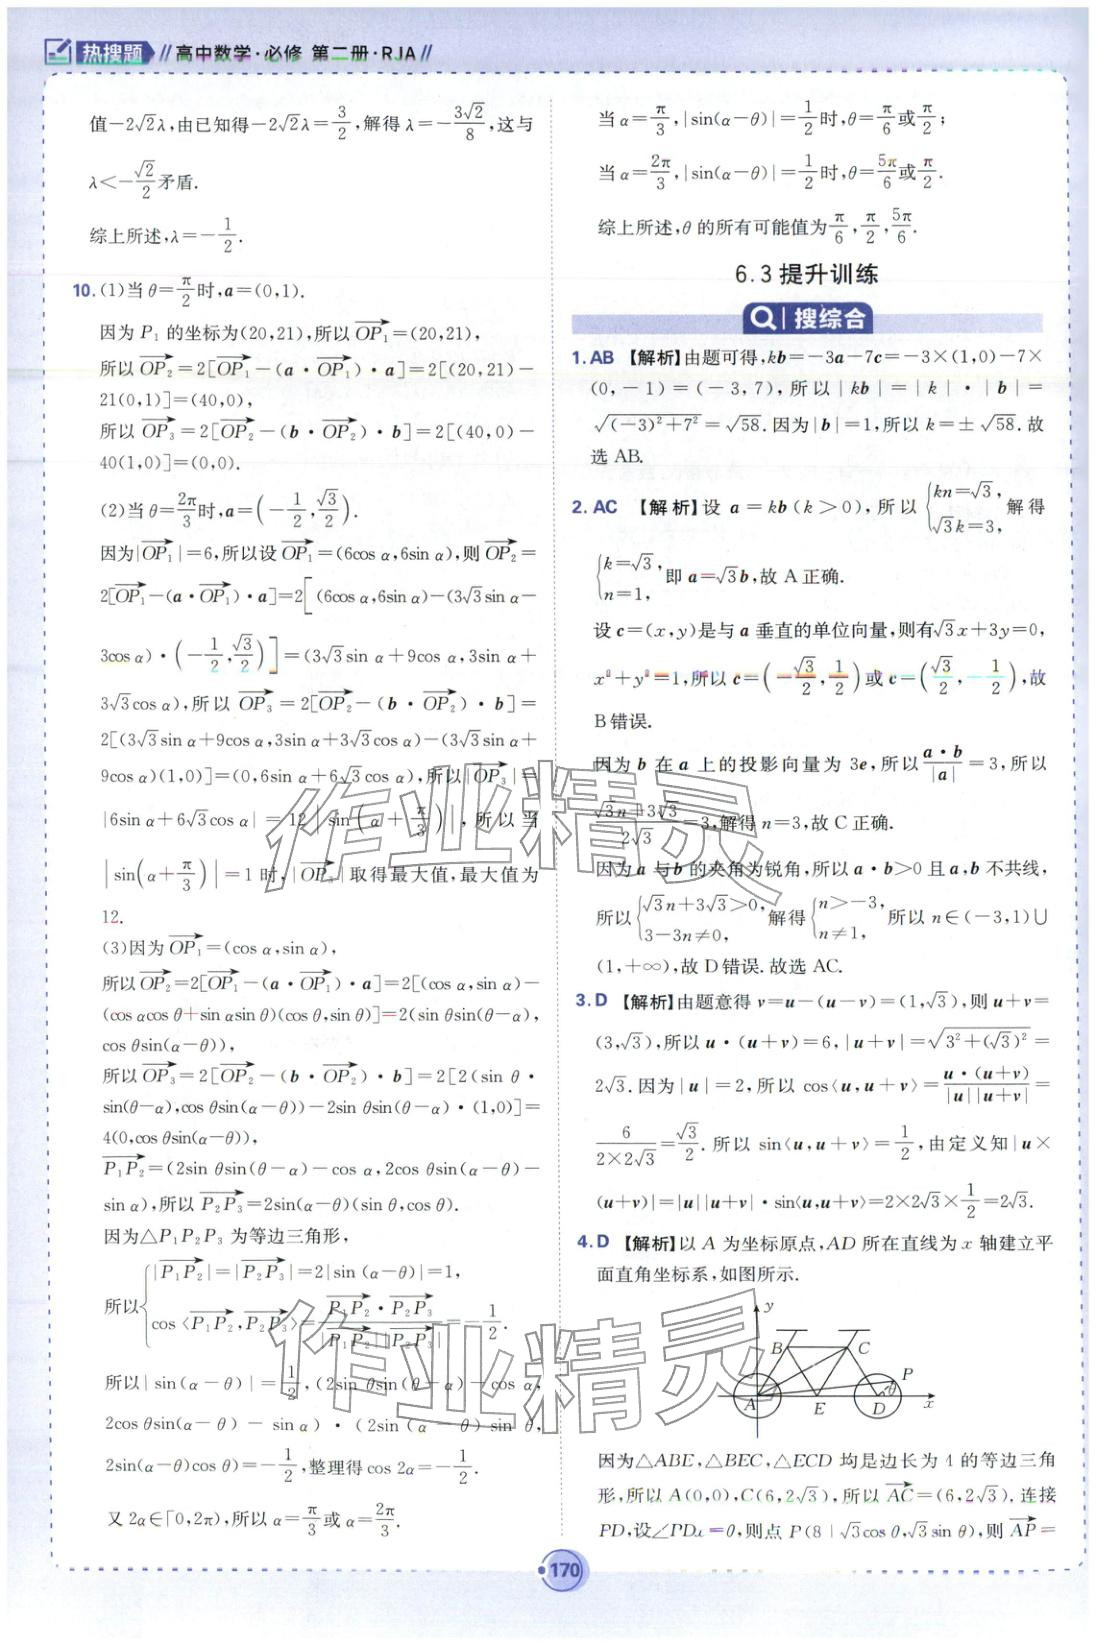 热搜题 // 高中数学·必修 第二册·RJA //
值-2√2λ,由已知得-2√2λ=3/2,解得λ=-3√2/8,这与
λ<-√2/2矛盾.
综上所述,λ=-1/2.
10.(1)当θ=π/2时,a=(0,1).
因为P₁的坐标为(20,21),所以OP₁→=(20,21),
所以OP₂→=2[OP₁→-(a·OP₁→)·a]=2[(20,21)-
21(0,1)]=(40,0),
所以OP₃→=2[OP₂→-(b·OP₂→)·b]=2[(40,0)-
40(1,0)]=(0,0).
(2)当θ=2π/3时,a=(-1/2,√3/2).
因为|OP₁→|=6,所以设OP₁→=(6cos α,6sin α),则OP₂→=
2[OP₁→-(a·OP₁→)·a]=2[(6cos α,6sin α)-(3√3sin α-
3cos α)·(-1/2,√3/2)]=(3√3sin α+9cos α,3sin α+
3√3cos α),所以OP₃→=2[OP₂→-(b·OP₂→)·b]=
2[(3√3sin α+9cos α,3sin α+3√3cos α)-(3√3sin α+
9cos α)(1,0)]=(0,6sin α+6√3cos α),所以|OP₃→|=
|6sin α+6√3cos α|=12|sin(α+π/3)|,所以当
|sin(α+π/3)|=1时,|OP₃→|取得最大值,最大值为
12.
(3)因为OP₁→=(cos α,sin α),
所以OP₂→=2[OP₁→-(a·OP₁→)·a]=2[(cos α,sin α)-
(cos αcos θ+sin αsin θ)(cos θ,sin θ)]=2(sin θsin(θ-α),
cos θsin(α-θ)),
所以OP₃→=2[OP₂→-(b·OP₂→)·b]=2[2(sin θ·
sin(θ-α),cos θsin(α-θ))-2sin θsin(θ-α)·(1,0)]=
4(0,cos θsin(α-θ)),
P₁P₂→=(2sin θsin(θ-α)-cos α,2cos θsin(α-θ)-
sin α),所以P₂P₃→=2sin(α-θ)(sin θ,cos θ).
因为△P₁P₂P₃为等边三角形,
所以{|P₁P₂→|=|P₂P₃→|=2|sin(α-θ)|=1,
cos〈P₁P₂→,P₂P₃→〉=P₁P₂→·P₂P₃→/|P₁P₂→||P₂P₃→|=-1/2.
所以|sin(α-θ)|=1/2,(2sin θsin(θ-α)-cos α,
2cos θsin(α-θ)-sin α)·(2sin(α-θ)sin θ,
2sin(α-θ)cos θ)=-1/2,整理得cos 2α=-1/2.
又2α∈[0,2π),所以α=π/3或α=2π/3.
当α=π/3,|sin(α-θ)|=1/2时,θ=π/6或π/2;
当α=2π/3,|sin(α-θ)|=1/2时,θ=5π/6或π/2.
综上所述,θ的所有可能值为π/6,π/2,5π/6.
6.3提升训练
搜综合
1.AB 【解析】由题可得,kb=-3a-7c=-3×(1,0)-7×
(0,-1)=(-3,7),所以|kb|=|k|·|b|=
√((-3)²+7²)=√58.因为|b|=1,所以k=±√58.故
选AB.
2.AC 【解析】设a=kb(k>0),所以{kn=√3,√3k=3,解得
{k=√3,n=1,即a=√3b,故A正确.
设c=(x,y)是与a垂直的单位向量,则有√3x+3y=0,
x²+y²=1,所以c=(-√3/2,1/2)或c=(√3/2,-1/2),故
B错误.
因为b在a上的投影向量为3e,所以a·b/|a|=3,所以
(√3n+3√3)/2√3=3,解得n=3,故C正确.
因为a与b的夹角为锐角,所以a·b>0且a,b不共线,
所以{√3n+3√3>0,3-3n≠0,解得{n>-3,n≠1,所以n∈(-3,1)∪
(1,+∞),故D错误.故选AC.
3.D 【解析】由题意得v=u-(u-v)=(1,√3),则u+v=
(3,√3),所以u·(u+v)=6,|u+v|=√(3²+(√3)²)=
2√3.因为|u|=2,所以cos〈u,u+v〉=u·(u+v)/|u||u+v|=
6/(2×2√3)=√3/2.所以sin〈u,u+v〉=1/2,由定义知|u×
(u+v)|=|u||u+v|·sin〈u,u+v〉=2×2√3×1/2=2√3.
4.D 【解析】以A为坐标原点,AD所在直线为x轴建立平
面直角坐标系,如图所示.
y
B C
P
A E D θ x
因为△ABE,△BEC,△ECD均是边长为4的等边三角
形,所以A(0,0),C(6,2√3),所以AC→=(6,2√3),连接
PD,设∠PDx=θ,则点P(8+√3cos θ,√3sin θ),则AP→=
170
作业精灵
作业精灵